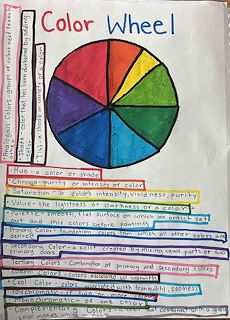 Color Wheel
Analogous Colors - groups of colors next
Shade - color that has been darkened by adding
Tint - a shade or variety of a color
Hue - a color or shade
Chroma - purity or intensity of color
Saturation - color's intensity, vividness, purity
Value - the lightness or darkness or a color
Palette - smooth, flat surface on which an artist set
out and mix colors before painting
Primary Color - foundation colors from which all other colors are
Secondary Color - a color created by mixing equal parts of two
primary colors
Colors - Combination of primary and secondary colors
Colors - colors associated w/ warmth
Cool Color - colors associated with tranquility, coolness
Monochromatic - of one color
Complementary Colors - a color that combined with a given